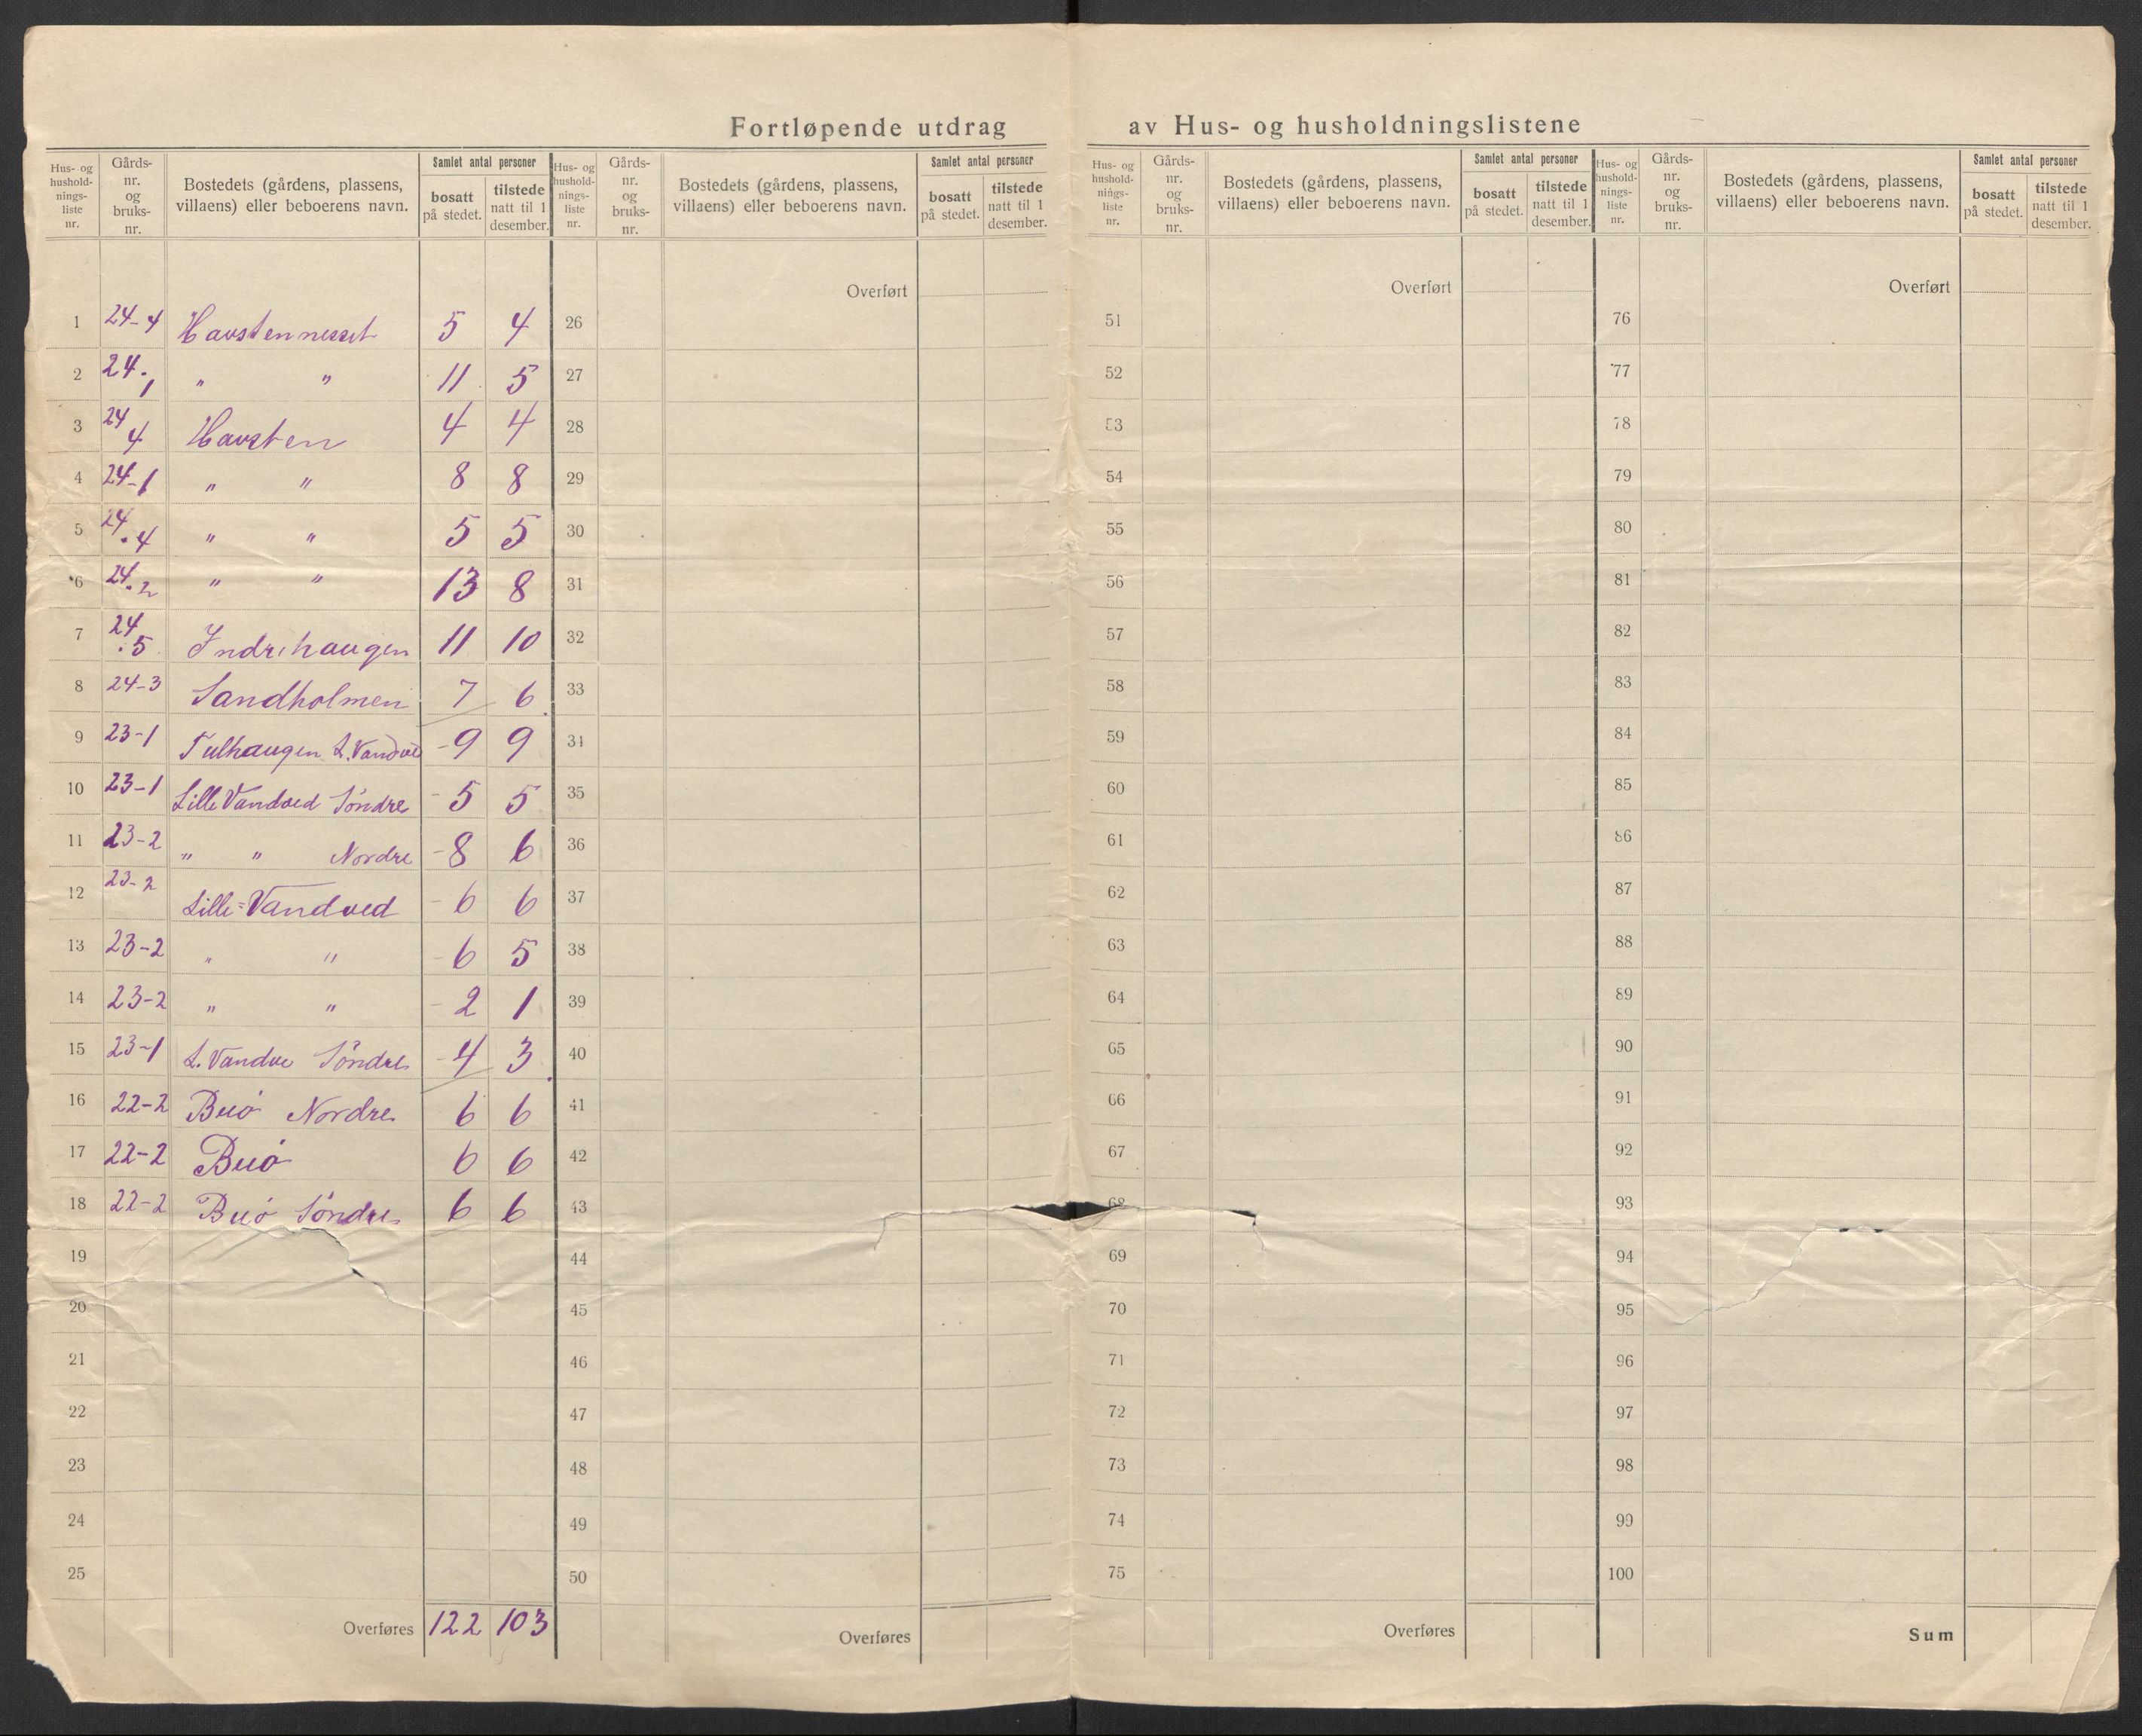 Fortløpende utdrag av Hus- og husholdningslistene
Hus- og husholdningsliste nr. | Gårds-nr. og bruks-nr. | Bostedets (gårdens, plassens, villaens) eller beboerens navn. | Samlet antal personer bosatt på stedet. | tilstede natt til 1 desember.
1 24-4 Havstennesset 5 4
2 24.1 " " 11 5
3 24 4 Havsten 4 4
4 24-1 " " 8 8
5 24.4 " " 5 5
6 24.2 " " 13 8
7 24.5 Indrehaugen 11 10
8 24-3 Sandholmen 7 6
9 23-1 L. Vandved -9 9
10 23-1 Lille Vandved Söndre -5 5
11 23-2 " " Nordre -8 6
12 23-2 Lille=Vandved -6 6
13 23-2 " " -6 5
14 23-2 " " -2 1
15 23-1 L. Vandve Söndre -4 3
16 22-2 Buö Nordre 6 6
17 22-2 Buö 6 6
18 22-2 Buö Söndre 6 6
19
20
21
22
23
24
25
Overføres 122 103
Hus- og husholdningsliste nr. | Gårds-nr. og bruks-nr. | Bostedets (gårdens, plassens, villaens) eller beboerens navn. | Samlet antal personer bosatt på stedet. | tilstede natt til 1 desember.
Overført
26
27
28
29
30
31
32
33
34
35
36
37
38
39
40
41
42
43
44
45
46
47
48
49
50
Overføres
Hus- og husholdningsliste nr. | Gårds-nr. og bruks-nr. | Bostedets (gårdens, plassens, villaens) eller beboerens navn. | Samlet antal personer bosatt på stedet. | tilstede natt til 1 desember.
Overført
51
52
53
54
55
56
57
58
59
60
61
62
63
64
65
66
67
68
69
70
71
72
73
74
75
Overføres
Hus- og husholdningsliste nr. | Gårds-nr. og bruks-nr. | Bostedets (gårdens, plassens, villaens) eller beboerens navn. | Samlet antal personer bosatt på stedet. | tilstede natt til 1 desember.
Overført
76
77
78
79
80
81
82
83
84
85
86
87
88
89
90
91
92
93
94
95
96
97
98
99
100
Sum